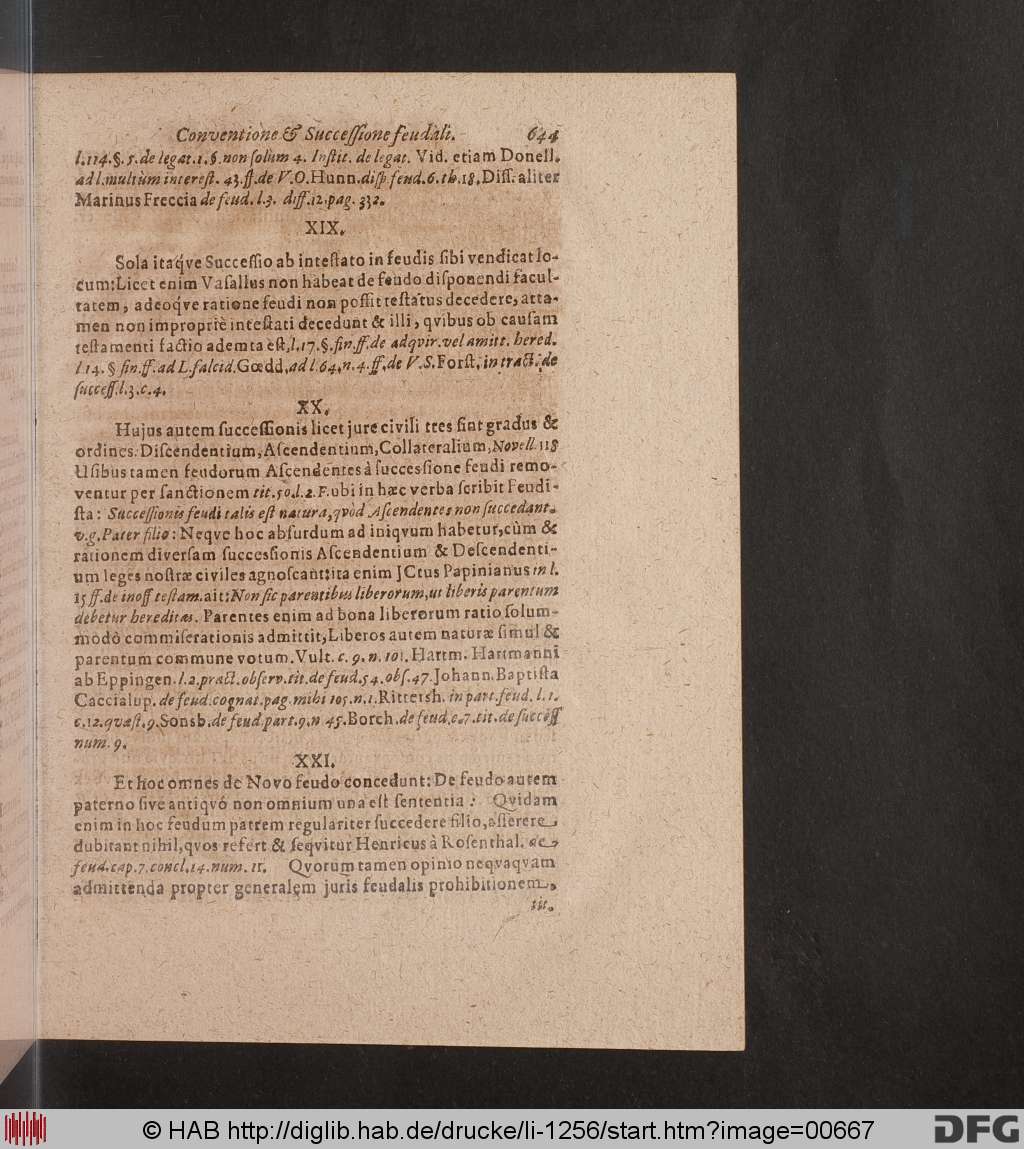 Conventione & Successione feudali. 644
l.114.§.5.de legat.1.§.non solùm 4. Instit. de legat. Vid. etiam Donell.
ad l.multùm interest. 43.ff.de V.O.Hunn.disp feud.6.th.18.Diss. aliter
Marinus Freccia de feud. l.3. diff.12.pag. 332.
XIX.
Sola itaqve Successio ab intestato in feudis sibi vendicat lo-
cum:Licet enim Vasallus non habeat de feudo disponendi facul-
tatem, adeoqve ratione feudi non possit testatus decedere, atta-
men non impropriè intestati decedunt & illi, qvibus ob causam
testamenti factio ademta est,l.17.§.fin.ff.de adqvir.vel amitt. hered.
l.14.§ fin.ff.ad L.falcid.Gœdd.ad l.64.n.4.ff.de V.S.Forst.in tract.de
success.l.3.c.4.
XX.
Hujus autem successionis licet jure civili tres sint gradus &
ordines. Discendentium,Ascendentium,Collateralium,Novell.118
Usibus tamen feudorum Ascendentes à successione feudi remo-
ventur per sanctionem tit.50.l.2.F.ubi in hæc verba scribit Feudi-
sta: Successionis feudi talis est natura,qvòd Ascendentes non succedant.
v.g.Pater filio: Neqve hoc absurdum ad iniqvum habetur,cùm &
rationem diversam successionis Ascendentium & Descendenti-
um leges nostræ civiles agnoscant:ita enim JCtus Papinianus in l.
15 ff.de inoff testam.ait:Non sic parentibus liberorum,ut liberis parentum
debetur hereditas. Parentes enim ad bona liberorum ratio solum-
modò commiserationis admittit,Liberos autem naturæ simul &
parentum commune votum.Vult. c. 9. n. 101. Hartm. Hartmanni
ab Eppingen.l.2.pract.observ.tit.de feud.54.obs.47.Johann.Baptista
Caccialup. de feud.cognat.pag.mihi 105.n.1.Rittersh. in part.feud. l.1.
c.12.qvæst.9.Sonsb.de feud.part.9.n 45.Borch.de feud.c.7.tit.de success
num. 9.
XXI.
Et hoc omnes de Novo feudo concedunt: De feudo autem
paterno sive antiqvó non omnium una est sententia : Qvidam
enim in hoc feudum patrem regulariter succedere filio,asserere
dubitant nihil,qvos refert & seqvitur Henricus à Rosenthal. de
feud.cap.7.concl.14.num. 11. Qvorum tamen opinio neqvaqvam
admittenda propter generalem juris feudalis prohibitionem,
tit.
© HAB http://diglib.hab.de/drucke/li-1256/start.htm?image=00667
DFG